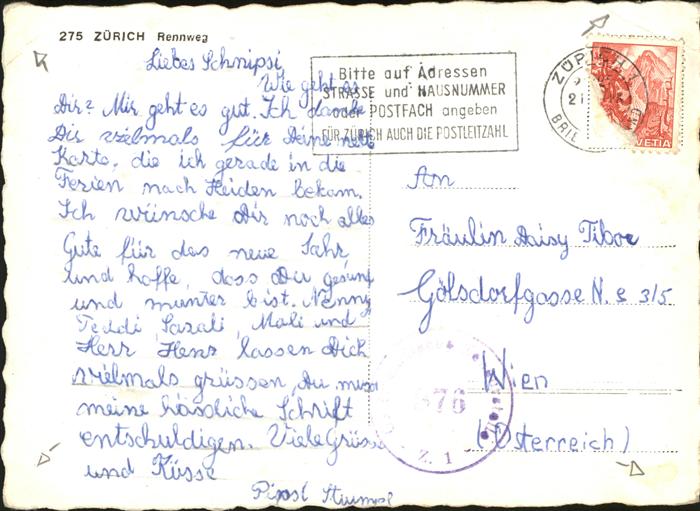 275 ZÜRICH Rennweg
Liebes Schnipsi
Wie geht es
Dir? Mir geht es gut. Ich danke
Dir vielmals für Deine nette
Karte, die ich gerade in die
Ferien nach Heiden bekam.
Ich wünsche Dir noch alles
Gute für das neue Jahr
und hoffe, dass Du gesund
und munter bist. Nenny
Teddi, Mali und
Herr lassen Dich
vielmals grüssen, Du musst
meine hässliche Schrift
entschuldigen. Viele Grüsse
und Küsse
Bitte auf Adressen
STRASSE und HAUSNUMMER
oder POSTFACH angeben
FÜR ZÜRICH AUCH DIE POSTLEITZAHL
ZÜRICH 1
21
BRIEF
HELVETIA
An
Fräulin Daisy Tibor
Gölsdorfgasse N. 3/5
Wien
(Österreich)
Z. 1